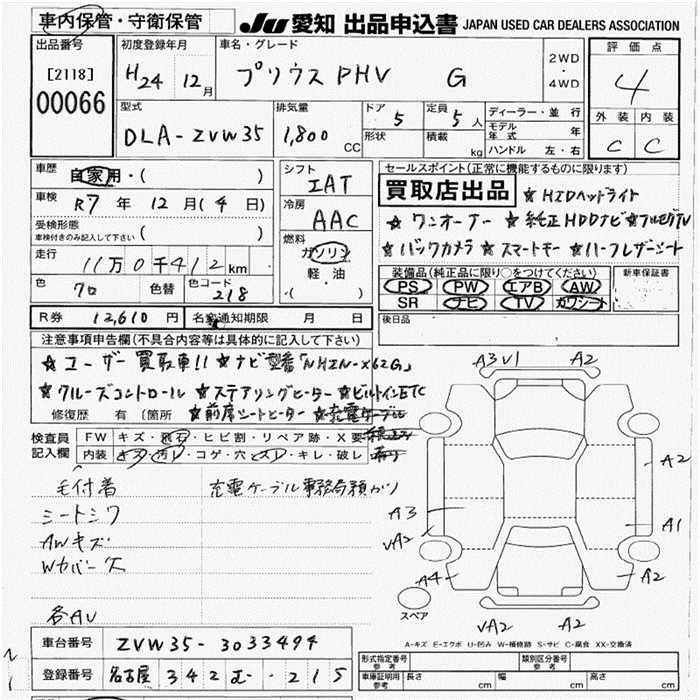 車内保管・守衛保管
JU 愛知 出品申込書 JAPAN USED CAR DEALERS ASSOCIATION
出品番号
[2118]
00066
初度登録年月
H24 12月
車名・グレード
プリウス PHV G
2WD
・
4WD
評価点
4
外装 内装
C C
型式
DLA-ZVW35
排気量
1,800 CC
ドア 5
形状
定員 5人
積載 kg
ディーラー・並行
モデル年式 年
ハンドル 左・右
車歴 自家用・( )
車検 R7年 12月(4日)
受検形態
車検付きのみ記入して下さい ( )
走行 11万0千412km
色 クロ 色替 色コード 218
シフト
IAT
冷房
AAC
燃料
ガソリン
軽油
・( )
セールスポイント(正常に機能するものに限ります)
買取店出品 ★HIDヘッドライト
★ワンオーナー ★純正HDDナビ★フルセグTV
★バックカメラ ★スマートキー ★ハーフレザーシート
装備品(純正品に限り○をつけてください) 新車保証書
PS PW エアB AW
SR ナビ TV カワシート
後日品
R券 12,610円 名変通知期限 月 日
注意事項申告欄(不具合内容等は具体的に記入して下さい)
★ユーザー買取車!! ★ナビ型番「NHZN-X62G」
★クルーズコントロール ★ステアリングヒーター ★ビルトインETC
修復歴 有(箇所 ★前席シートヒーター ★充電ケーブル
検査員記入欄
FW キズ・飛石・ヒビ割・リペア跡・X要
内装 キズ・汚レ・コゲ・穴・スレ・キレ・破レ
毛付着 充電ケーブル事務局預かり
シートシワ
AWキズ
Wカバー欠
各AU
A3 V1 A2
A2
A3
VA2
A1
A4
A2
VA2 A2
スペア
A-キズ E-エクボ U-凹み W-補修跡 S-サビ C-腐食 XX-交換済
車台番号 ZVW35-3033494
登録番号 名古屋 342 む -215
形式指定番号 参考
類別区分番号 参考
車庫証明用 参考 長さ cm 幅 cm 高さ cm